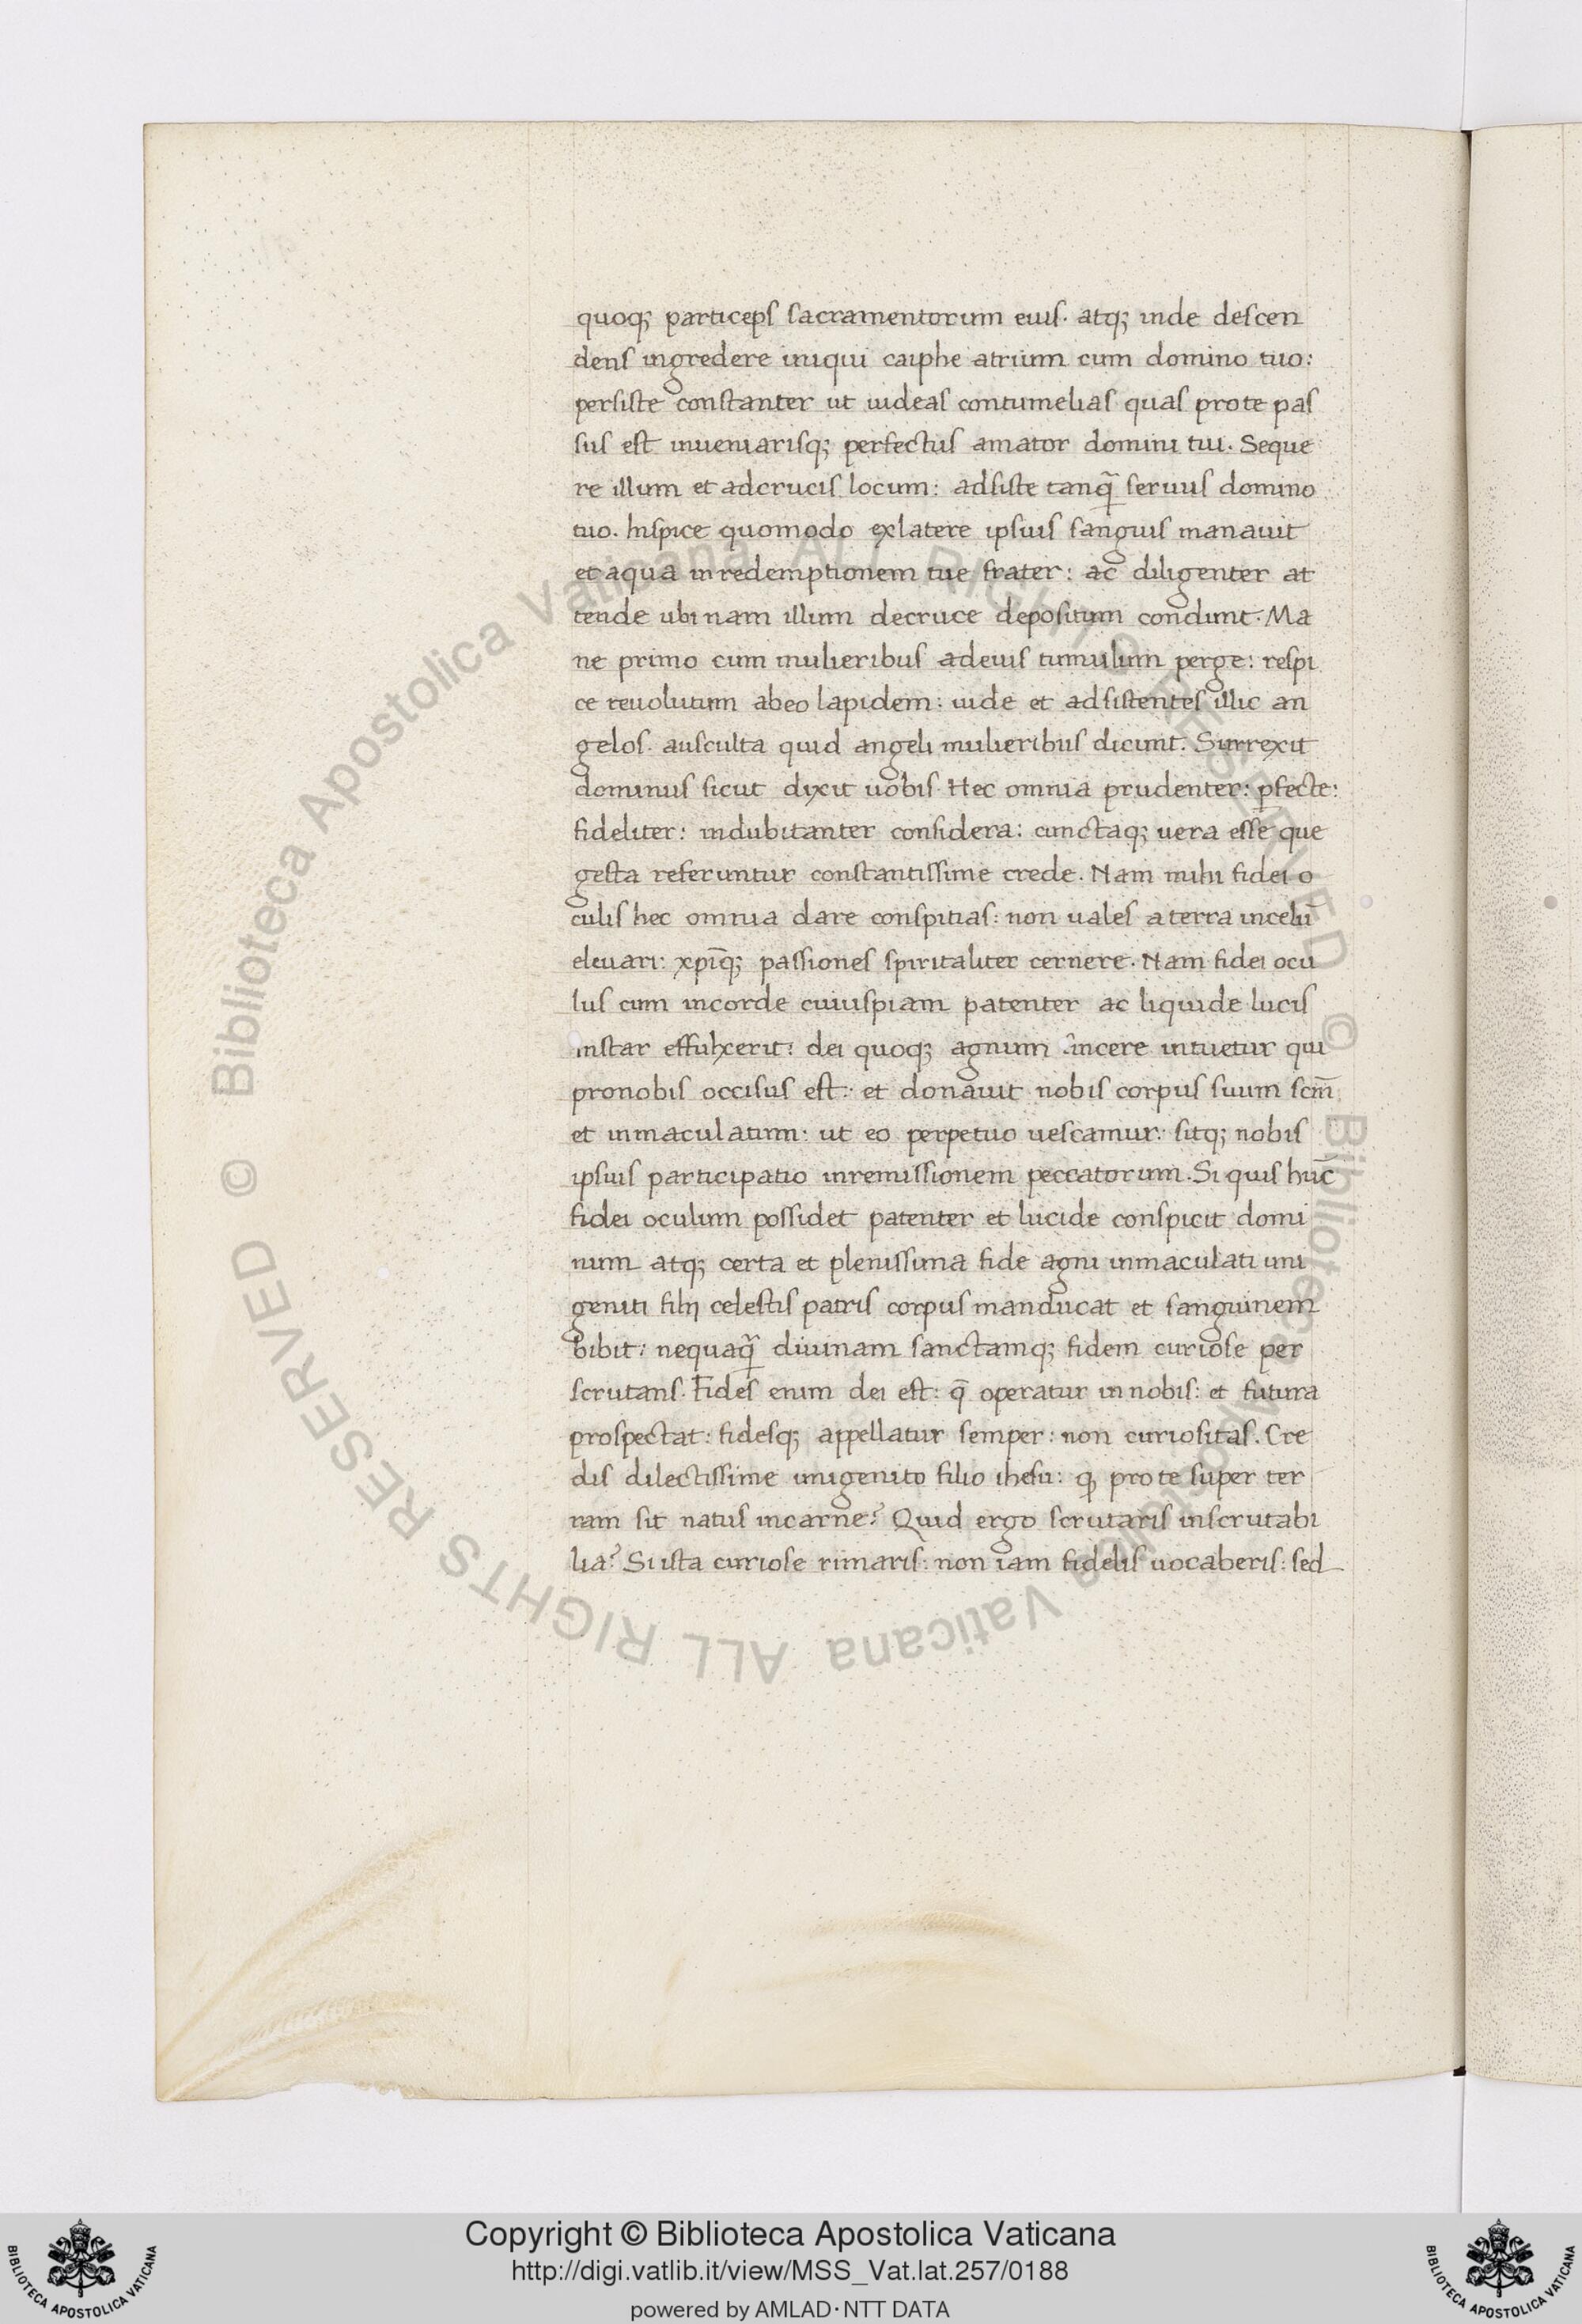 quoq; particeps sacramentorum eius. atq; inde descen
dens ingredere iniqui caiphe atrium cum domino tuo:
persiste constanter ut uideas contumelias quas pro te pas
sus est inueniarisq; perfectus amator domini tui. Seque
re illum et ad crucis locum: adsiste tanq̃ seruus domino
tuo. Inspice quomodo ex latere ipsius sanguis manauit
et aqua in redemptionem tue frater: ac diligenter at
tende ubi nam illum de cruce depositum condunt. Ma
ne primo cum mulieribus ad eius tumulum perge: respi
ce reuolutum ab eo lapidem: uide et adsistentes illic an
gelos. ausculta quid angeli mulieribus dicunt. Surrexit
dominus sicut dixit uobis. Hec omnia prudenter: pfecte:
fideliter: indubitanter considera: cunctaq; uera esse que
gesta referuntur constantissime crede. Nam nihi fidei o
culis hec omnia dare conspitias: non uales a terra in celũ
eleuari: xp̄iq; passiones spiritaliter cernere. Nam fidei ocu
lus cum in corde cuiuspiam patenter ac liquide lucis
instar effulxerit: dei quoq; agnum sincere intuetur qui
pro nobis occisus est: et donauit nobis corpus suum scm̄
et inmaculatum: ut eo perpetuo uescamur: sitq; nobis
ipsius participatio in remissionem peccatorum. Si quis hũc
fidei oculum possidet patenter et lucide conspicit domi
num atq; certa et plenissima fide agni inmaculati uni
geniti filij celestis patris corpus manducat et sanguinem
bibit: nequaq̃ diuinam sanctamq; fidem curiose per
scrutans. Fides enim dei est: q̄ operatur in nobis: et futura
prospectat: fidesq; appellatur semper: non curiositas. Cre
dis dilectissime unigenito filio ihesu: ꝙ pro te super ter
ram sit natus in carne? Quid ergo scrutaris inscrutabi
lia? Si ista curiose rimaris: non iam fidelis uocaberis: sed
© Biblioteca Apostolica Vaticana ALL RIGHTS RESERVED © Biblioteca Apostolica Vaticana ALL RIGHTS RESERVED
Copyright © Biblioteca Apostolica Vaticana
http://digi.vatlib.it/view/MSS_Vat.lat.257/0188
powered by AMLAD·NTT DATA
BIBLIOTECA APOSTOLICA VATICANA
BIBLIOTECA APOSTOLICA VATICANA